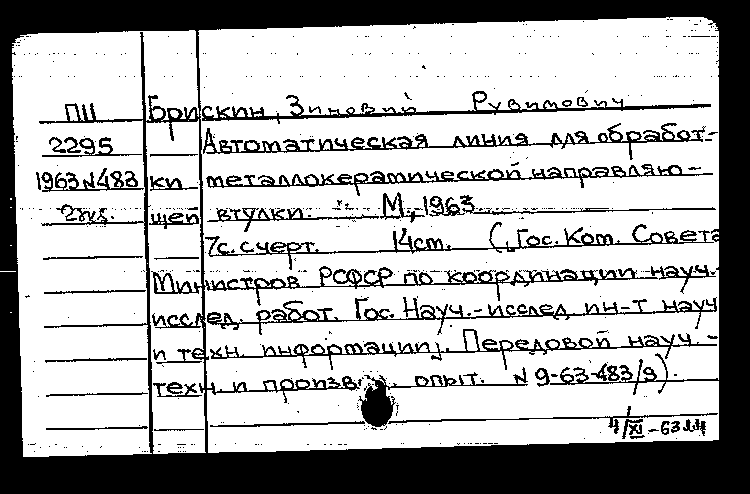 ПII Брискин, Зиновий Рувимович
2295 Автоматическая линия для обработ-
1963 N483 ки металлокерамической направляю-
2экз. щей втулки. М., 1963
7с. с черт. 14cm. (Гос. Ком. Совета
Министров РСФСР по координации науч.-
исслед. работ. Гос. Науч.-исслед. ин-т науч
и техн. информации. Передовой науч.-
техн. и произв. опыт. N 9-63-483/9).
4/XI-63